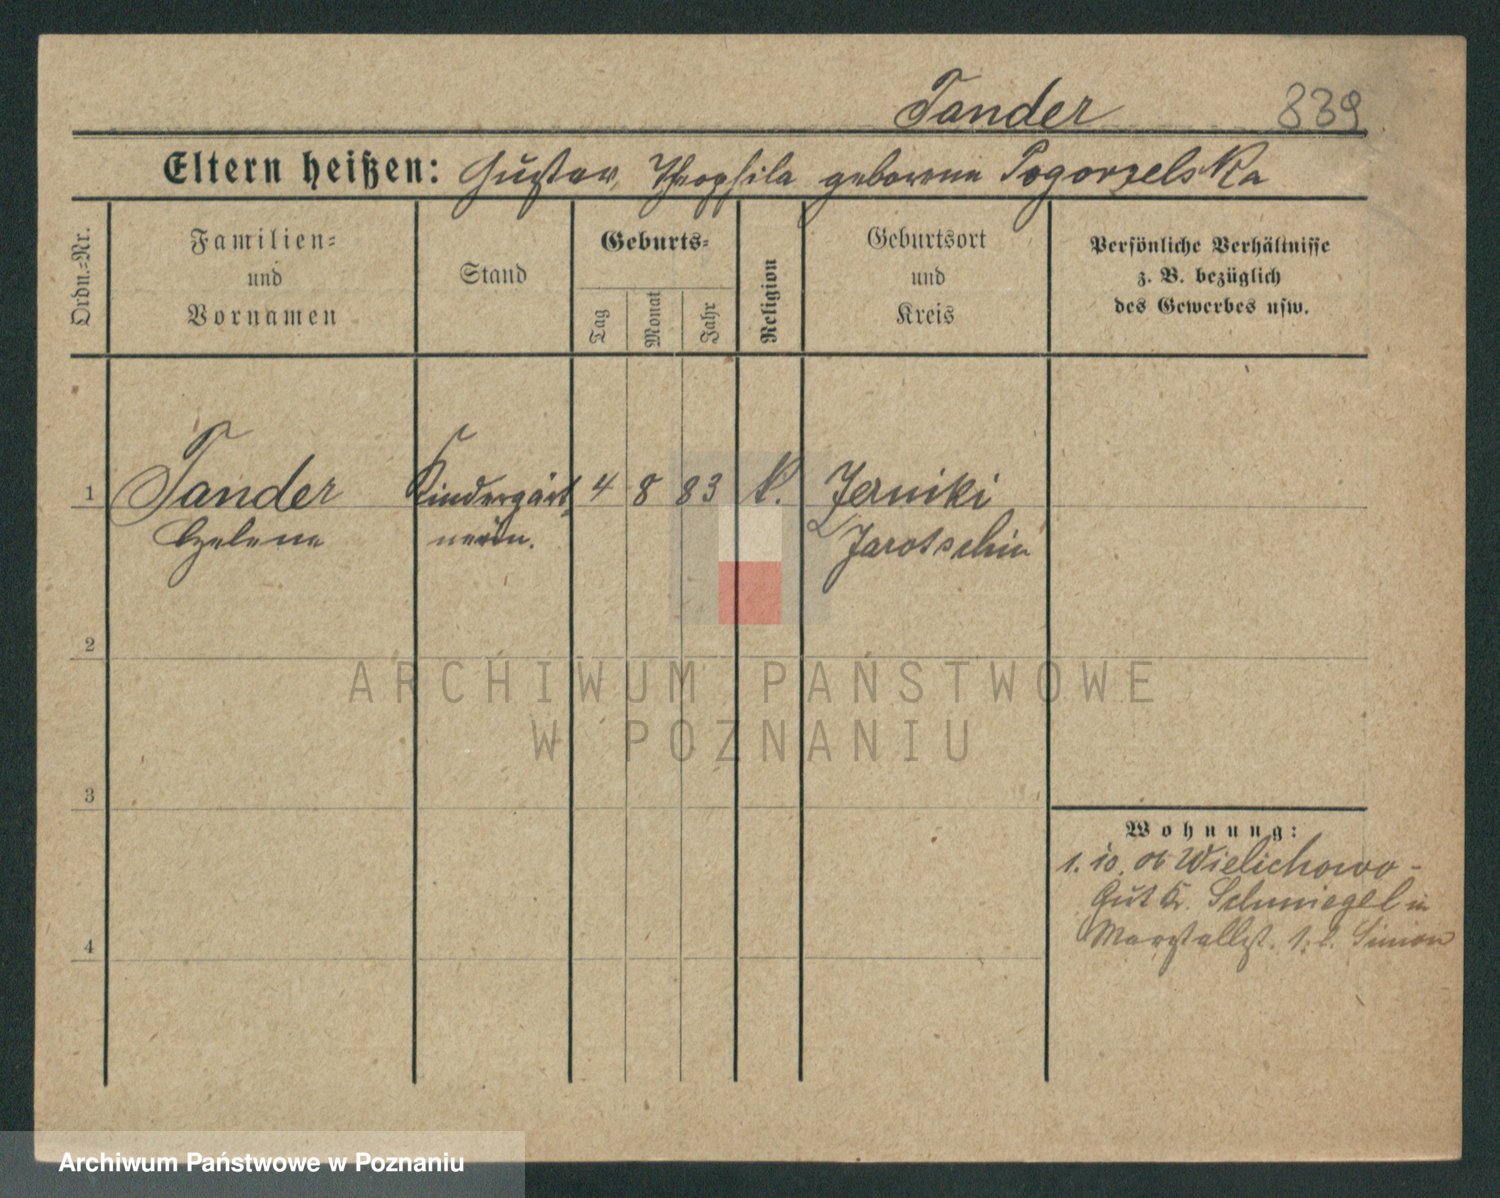 Tander 839
Eltern heißen: Gustav, Theophila geborene Pogorzelska
Ordn.=Nr.
Familien=
und
Vornamen
Stand
Geburts=
Tag
Monat
Jahr
Religion
Geburtsort
und
Kreis
Persönliche Verhältnisse
z. B. bezüglich
des Gewerbes usw.
1 Tander Kindergärt 4 8 83 k. Zerniki
Helene nerin. Jarotschin
2
ARCHIWUM PAŃSTWOWE
W POZNANIU
3
Wohnung:
1. 10. 06 Wielichowo-
Gut Kr. Schmiegel in
Marstallst. Simon
4
Archiwum Państwowe w Poznaniu